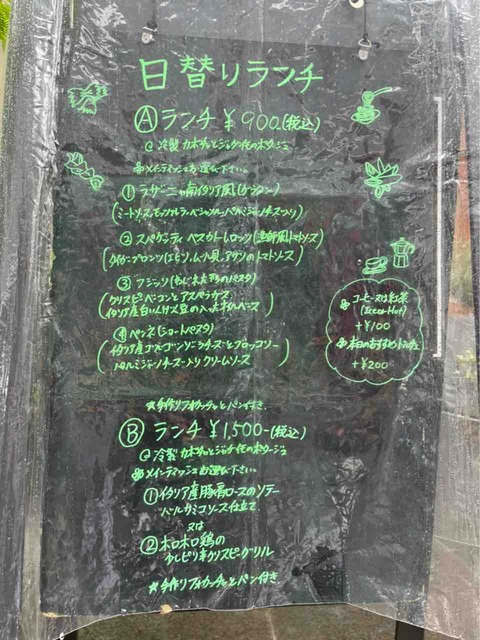 日替りランチ
Ⓐランチ ¥900(税込)
@ 冷製 カボチャとジャガ芋のポタージュ
メインディッシュお選び下さい。
① ラザーニャ南イタリア風(グラタン)
(ミートソース、モッツァレラ、ベシャメル、パルミジャーノチーズ入り)
② スパゲッティ ペスカトーレロッソ(漁師風トマトソース)
アサリのトマトソース
③ フジッリ(ねじれた形のパスタ)
クリスピーベーコンとアスパラガス
イタリア産白いんげん豆の入った
④ ペンネ(ショートパスタ)
イタリア産ゴルゴンゾーラチーズとブロッコリー
パルミジャーノチーズ入りクリームソース
★手作りフォカッチャとパン付き
コーヒー又は紅茶
(Ice or Hot)
+¥100
本日のおすすめドルチェ
+¥200
Ⓑ ランチ ¥1,500-(税込)
@ 冷製 カボチャとジャガ芋のポタージュ
メインディッシュお選び下さい。
①イタリア産豚肩ロースのソテー
バルサミコソース仕立て
又は
②ホロホロ鶏の
少しピリ辛クリスピーグリル
★手作りフォカッチャとパン付き